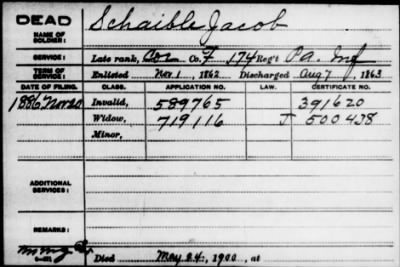 DEAD
NAME OF SOLDIER: Schaible Jacob
SERVICE: Late rank, Co. F 174 Reg't Pa. Inf
TERM OF SERVICE: Enlisted Nov. 1, 1862 Discharged Aug 7, 1863
DATE OF FILING. CLASS. APPLICATION NO. LAW. CERTIFICATE NO.
1886 Nov Invalid, 589765 391620
Widow, 719116 J 500438
Minor,
ADDITIONAL SERVICES:
REMARKS:
Died May 24, 1900, at